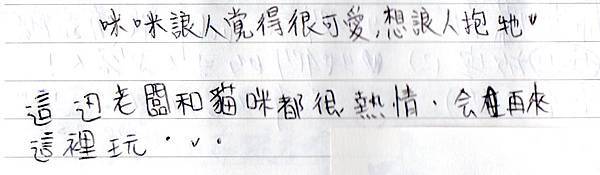 咪咪讓人覺得很可愛,想讓人抱牠♥
這边老闆和貓咪都很熱情.会再來
這裡玩...